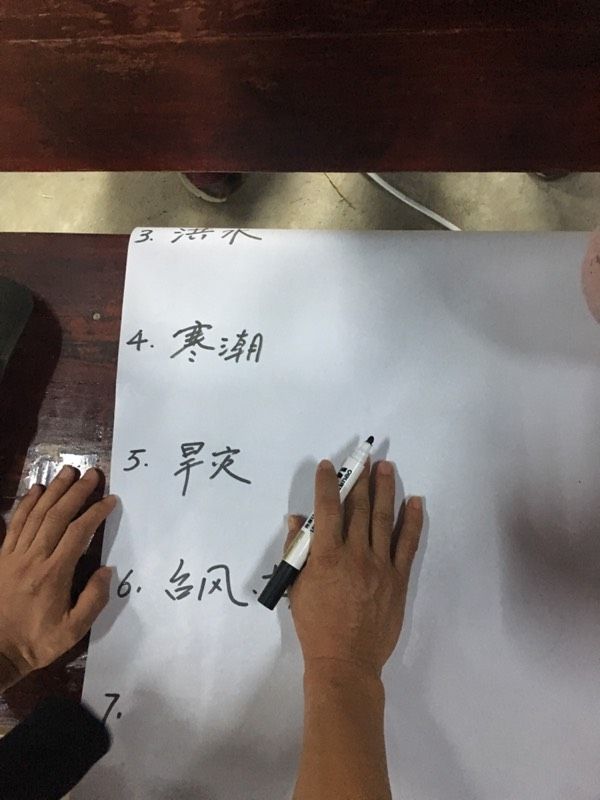 3. 洪水
4. 寒潮
5. 旱灾
6. 台风、
7.